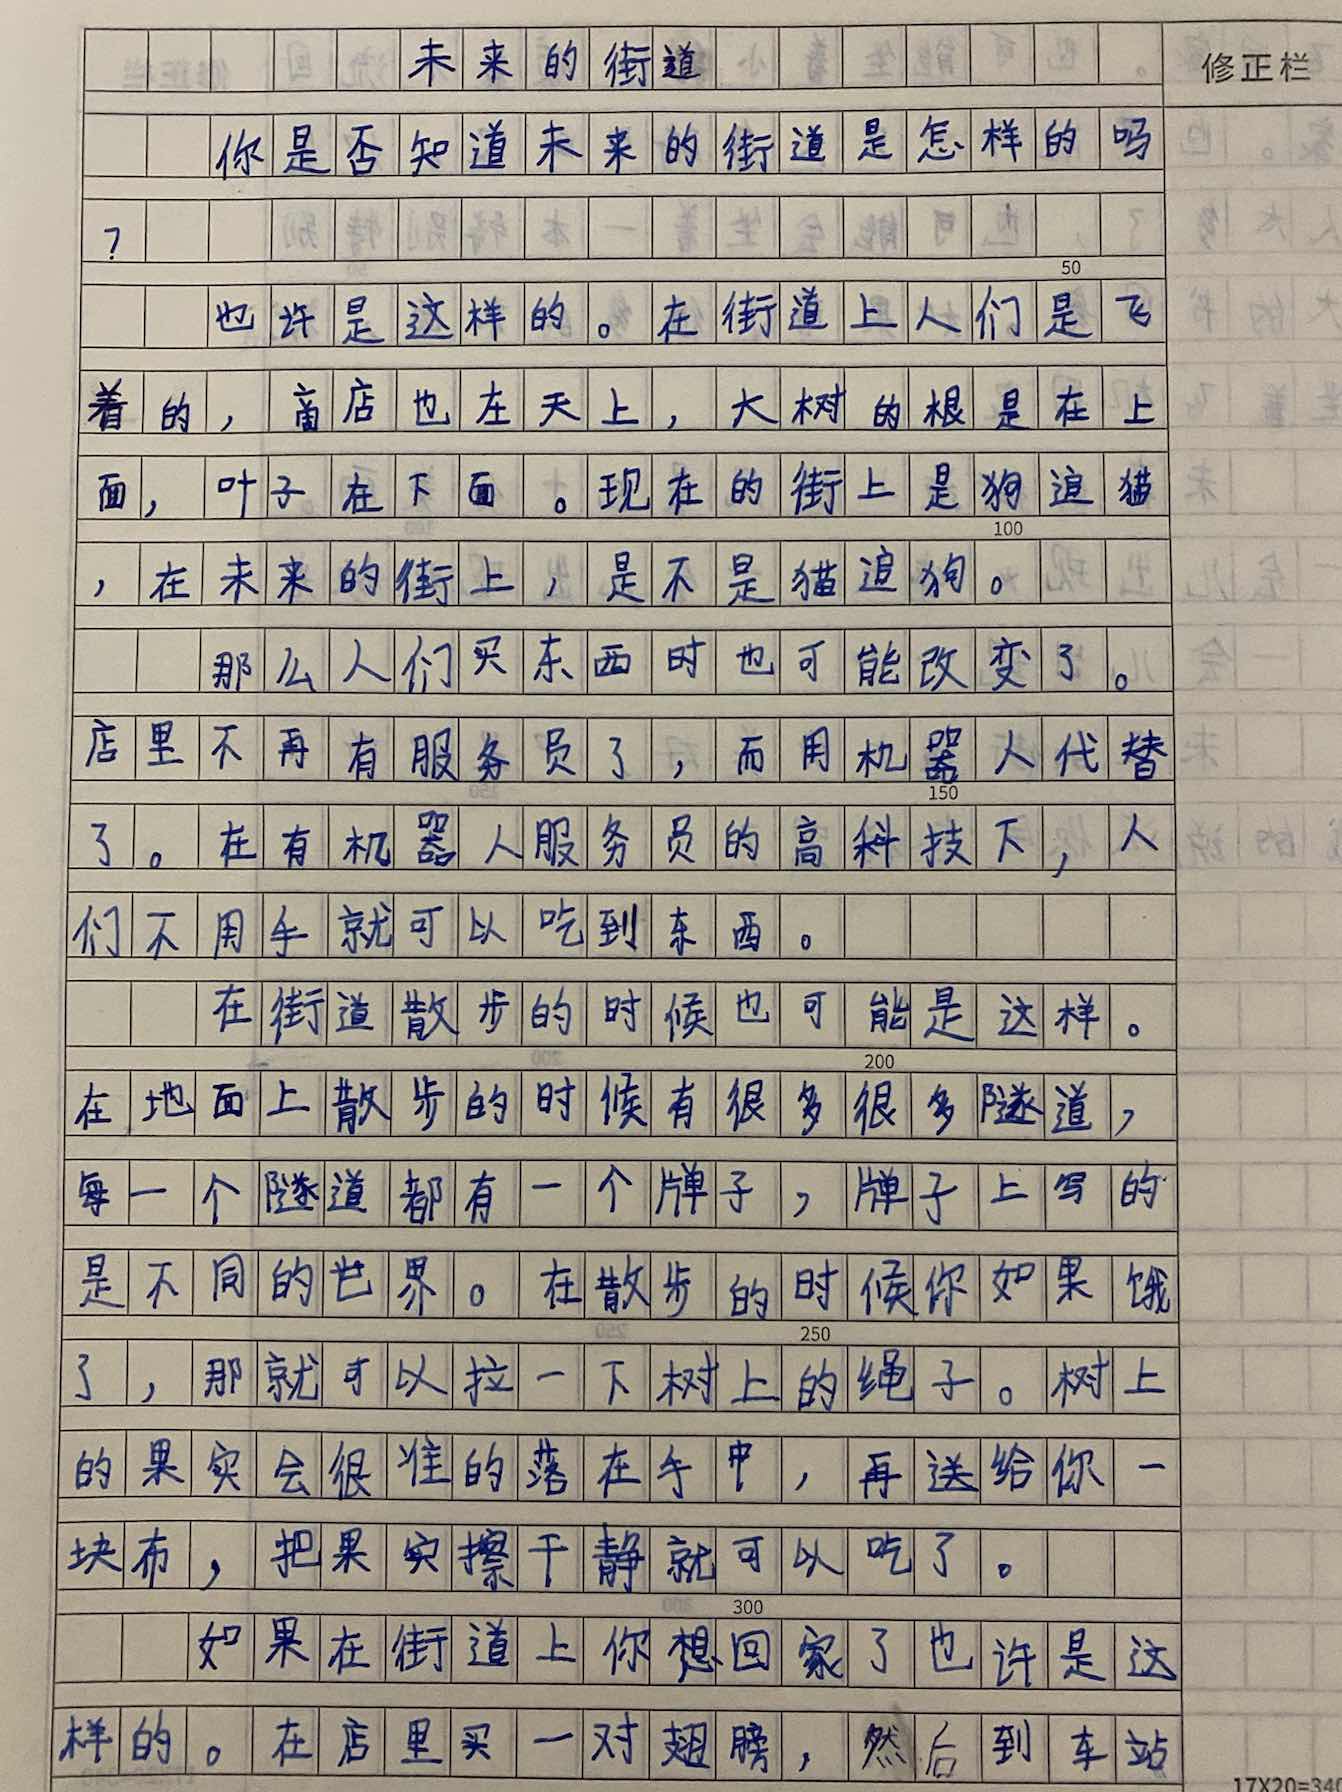 未来的街道
修正栏
你是否知道未来的街道是怎样的吗
？
50
也许是这样的。在街道上人们是飞
着的，商店也在天上，大树的根是在上
面，叶子在下面。现在的街上是狗追猫
100
，在未来的街上，是不是猫追狗。
那么人们买东西时也可能改变了。
店里不再有服务员了，而用机器人代替
150
了。在有机器人服务员的高科技下，人
们不用手就可以吃到东西。
在街道散步的时候也可能是这样。
200
在地面上散步的时候有很多很多隧道，
每一个隧道都有一个牌子，牌子上写的
是不同的世界。在散步的时候你如果饿
250
了，那就可以拉一下树上的绳子。树上
的果实会很准的落在手中，再送给你一
块布，把果实擦干静就可以吃了。
300
如果在街道上你想回家了也许是这
样的。在店里买一对翅膀，然后到车站
17X20=34